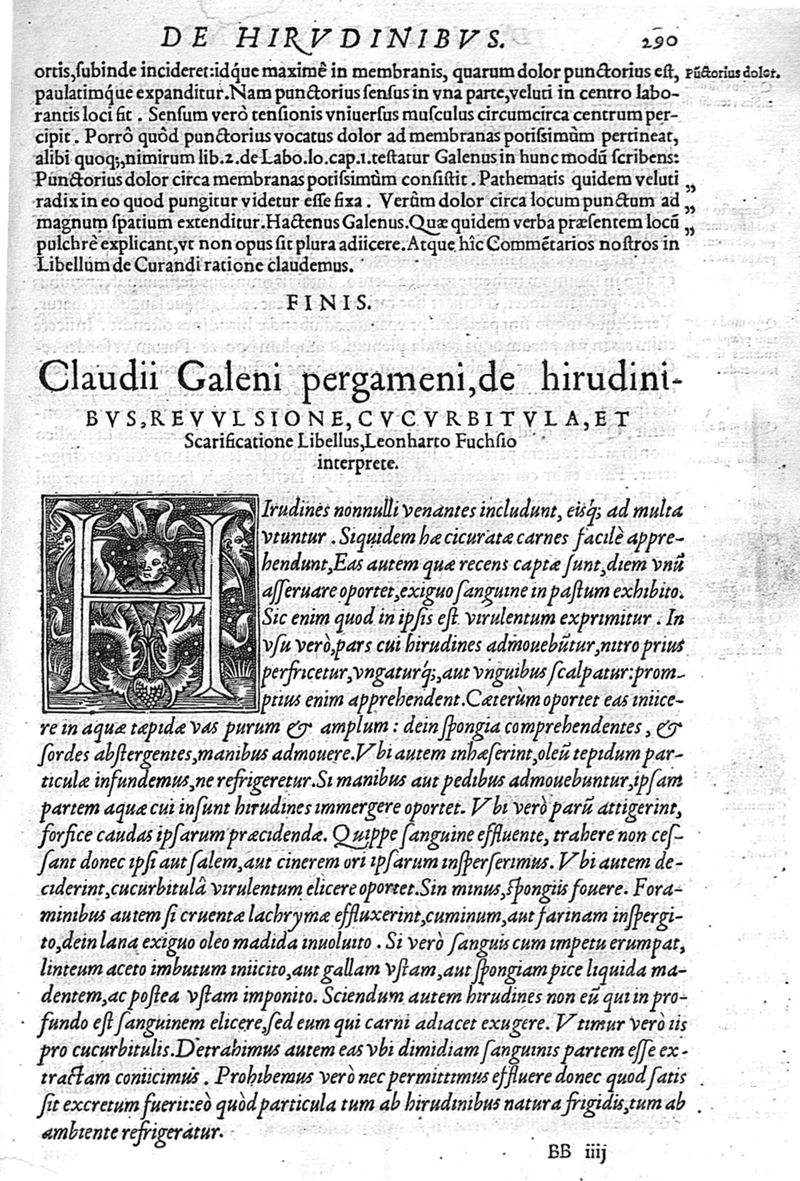 DE HIRVDINIBVS. 290
ortis,ſubinde incideret:idq́ue maximê in membranis, quarum dolor punctorius eſt, Pūctorius dolor.
paulatimq́ue expanditur.Nam punctorius ſenſus in vna parte,veluti in centro labo-
rantis loci fit . Senſum verò tenſionis vniuerſus muſculus circumcirca centrum per-
cipit . Porrô quôd punctorius vocatus dolor ad membranas potiſsimùm pertineat,
alibi quoq;,nimirum lib.2.de Labo.lo.cap.1.teſtatur Galenus in hunc modū ſcribens:
Punctorius dolor circa membranas potiſsimùm conſiſtit . Pathematis quidem veluti „
radix in eo quod pungitur videtur eſſe fixa . Verùm dolor circa locum punctum ad „
magnum ſpatium extenditur.Hactenus Galenus.Quæ quidem verba præſentem locū „
pulchrè explicant,vt non opus ſit plura adiicere.Atque hîc Commētarios noſtros in
Libellum de Curandi ratione claudemus.
FINIS.
Claudii Galeni pergameni,de hirudini-
BVS,REVVLSIONE,CVCVRBITVLA,ET
Scarificatione Libellus,Leonharto Fuchſio
interprete.
HIrudines nonnulli venantes includunt, eisq́; ad multa
vtuntur . Siquidem hæ cicuratæ carnes facilè appre-
hendunt,Eas autem quæ recens captæ ſunt,diem vnū
aſſeruare oportet,exiguo ſanguine in paſtum exhibito.
Sic enim quod in ipſis eſt virulentum exprimitur . In
vſu verò,pars cui hirudines admouebūtur,nitro prius
perfricetur,vngaturq́;,aut vnguibus ſcalpatur:prom-
ptius enim apprehendent.Cæterùm oportet eas iniice-
re in aquæ tæpidæ vas purum & amplum : dein ſpongia comprehendentes, &
ſordes abſtergentes,manibus admouere.Vbi autem inhæſerint,oleū tepidum par-
ticulæ infundemus,ne refrigeretur.Si manibus aut pedibus admouebuntur,ipſam
partem aquæ cui inſunt hirudines immergere oportet. Vbi verò parū attigerint,
forfice caudas ipſarum præcidendæ. Quippe ſanguine effluente, trahere non ceſ-
ſant donec ipſi aut ſalem,aut cinerem ori ipſarum inſperſerimus. Vbi autem de-
ciderint,cucurbitulâ virulentum elicere oportet.Sin minus,ſpongiis fouere. Fora-
minibus autem ſi cruentæ lachrymæ effluxerint,cuminum,aut farinam inſpergi-
to,dein lana exiguo oleo madida inuoluito . Si verò ſanguis cum impetu erumpat,
linteum aceto imbutum iniicito,aut gallam vſtam,aut ſpongiam pice liquida ma-
dentem,ac poſtea vſtam imponito. Sciendum autem hirudines non eū qui in pro-
fundo eſt ſanguinem elicere,ſed eum qui carni adiacet exugere. Vtimur verò iis
pro cucurbitulis.Detrahimus autem eas vbi dimidiam ſanguinis partem eſſe ex-
tractam coniicimus . Prohibemus verò nec permittimus effluere donec quod ſatis
ſit excretum fuerit:eò quòd particula tum ab hirudinibus natura frigidis,tum ab
ambiente refrigeratur.
BB iiij